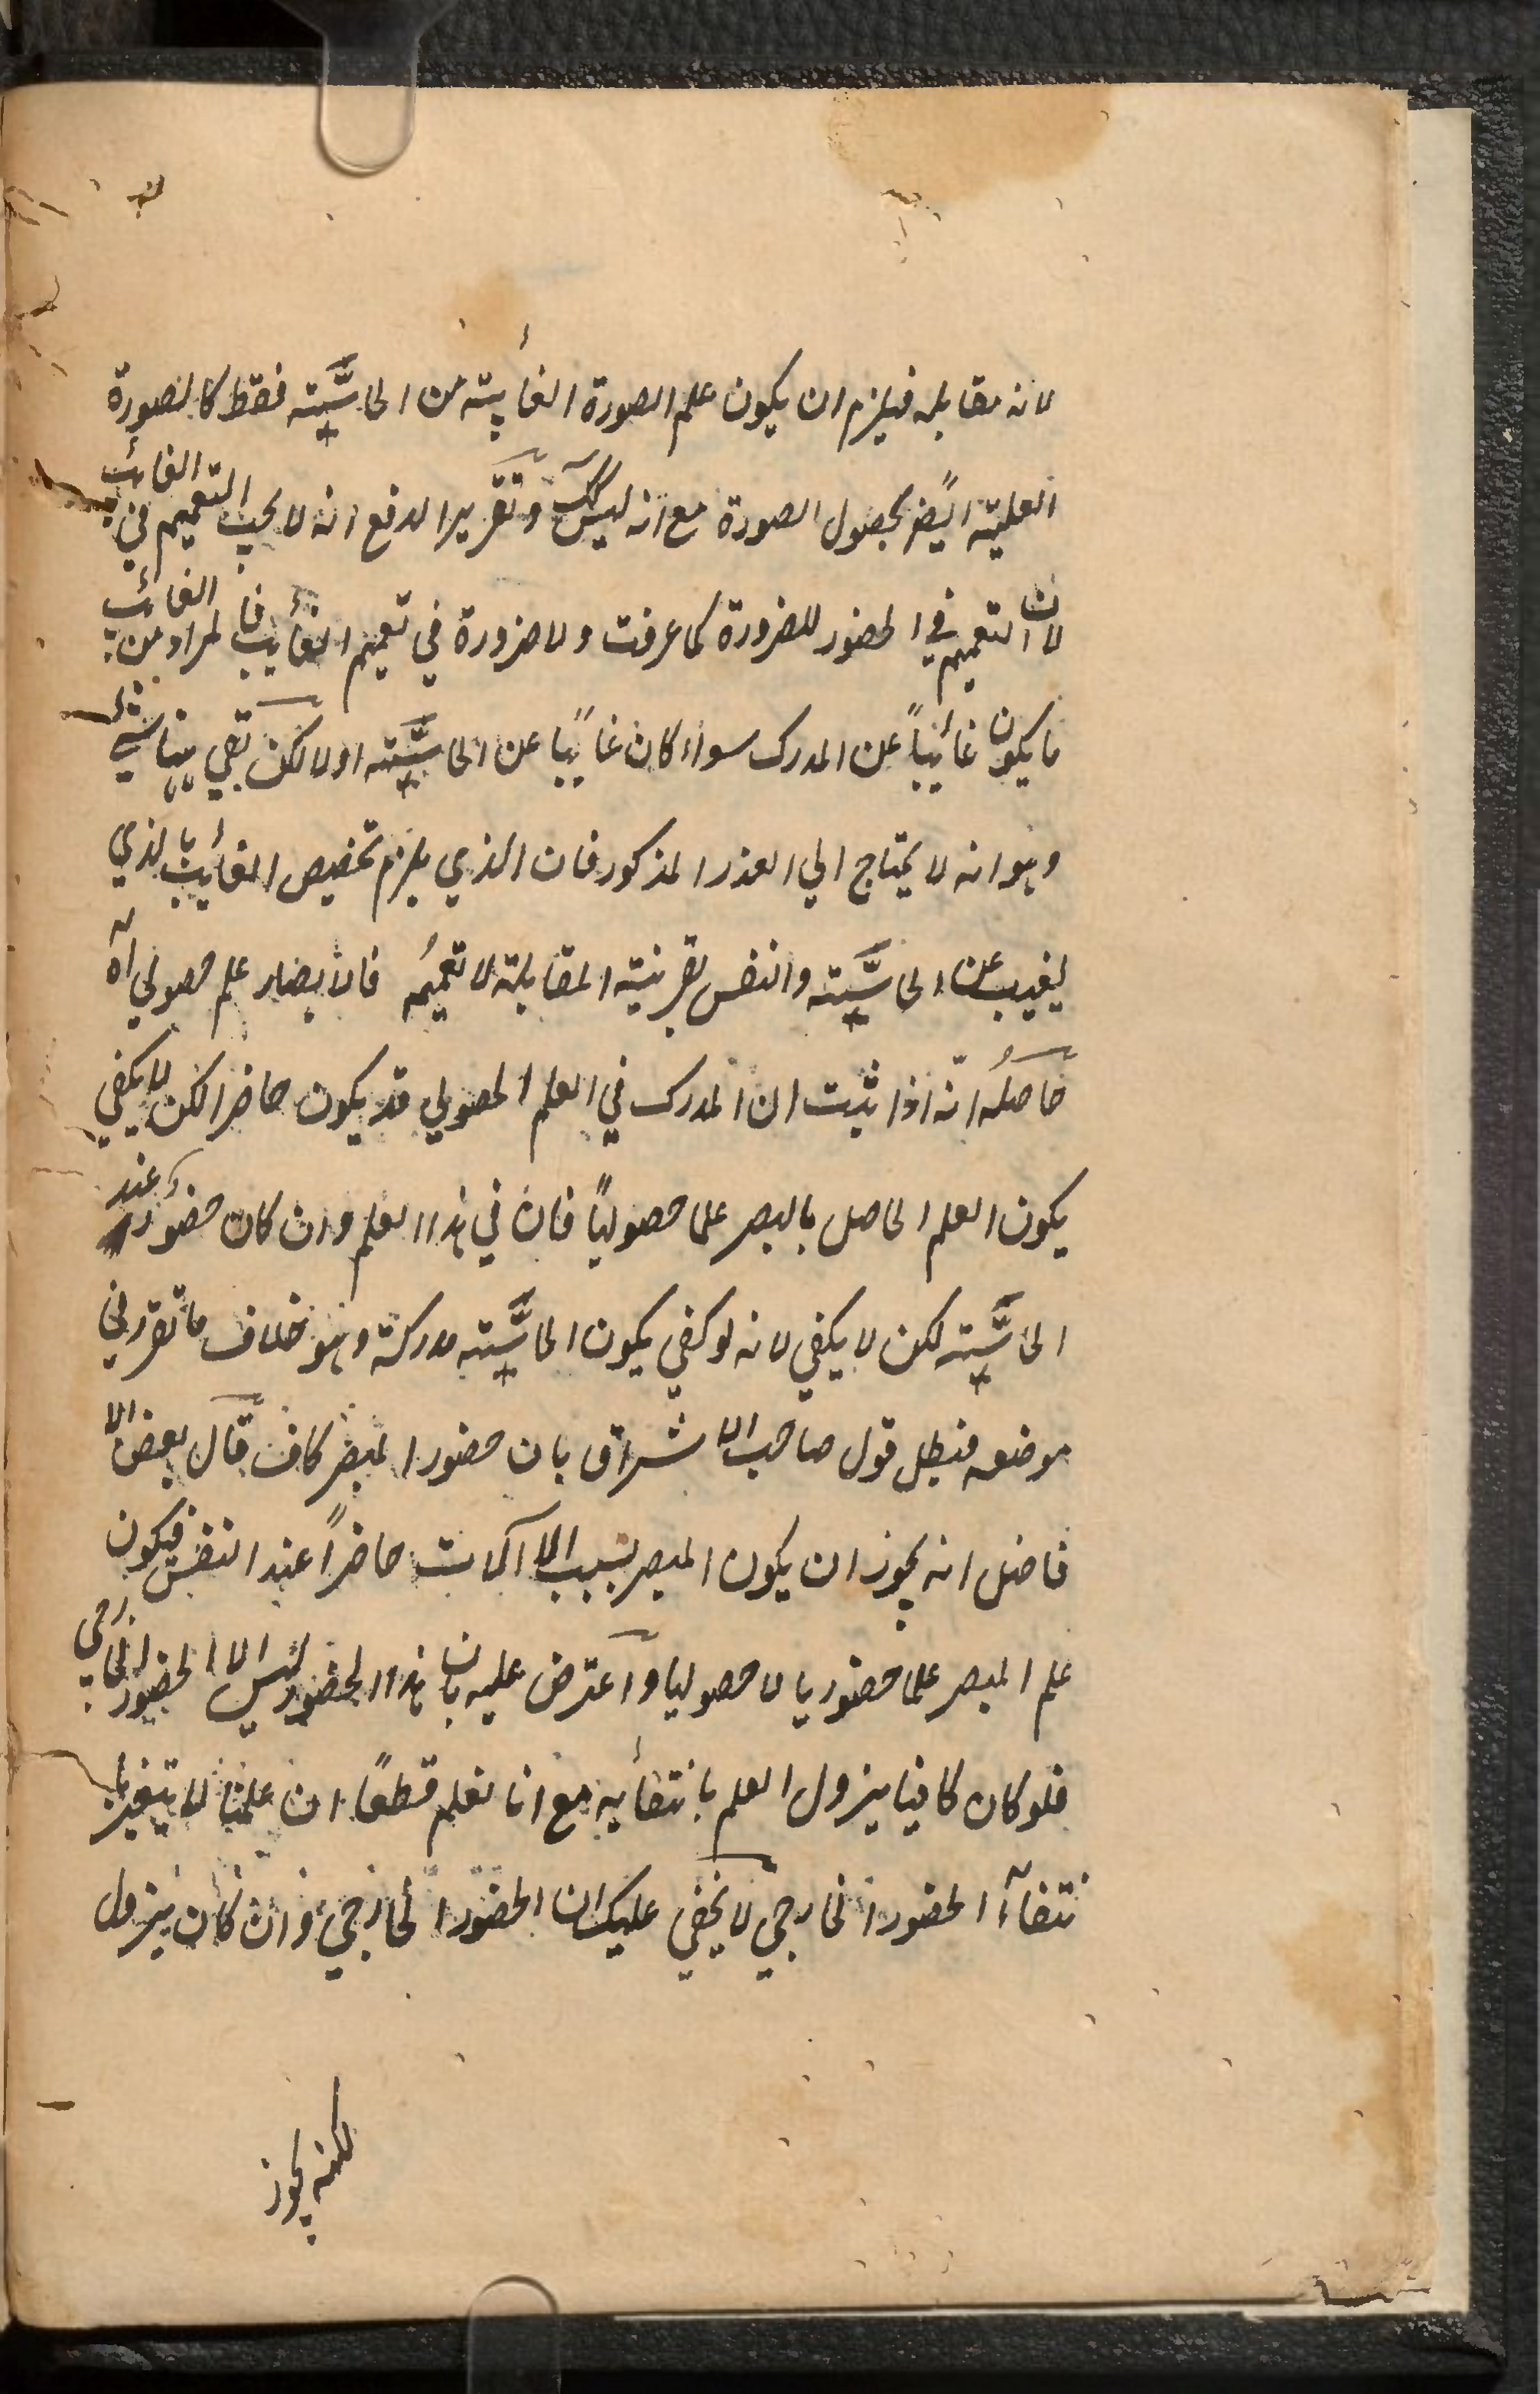 لانه مقابله فيلزم ان يكون علم الصورة الغائبة من الحاسَّة فقط كالصورة
العلمية ايضًا بحصول الصورة مع انه ليس كك وتقرير الدفع انه لا يجب التعميم في الغائب
لان التعميم في الحضور للضرورة كما عرفت ولا ضرورة في تعميم الغائب فالمراد من الغائب
ما يكون غائبًا عن المدرك سواء كان غائبًا عن الحاسَّة اولا لكن بقي شئ
وهو انه لا يحتاج الي العذر المذكور فان الذي يلزم تخصيص الغائب بالذي
يغيب عن الحاسَّة والنفس بقرينة المقابلة لا تعميمُه فالابصار علم حصولي آه
حاصلُه انّه اذا ثبت ان المدرك في العلم الحصولي قد يكون حاضرا لكن لا يكفي
يكون العلم الحاصل بالبصر علما حصوليًا فان في هذا العلم وان كان حضوره عند
الحاسَّة لكن لا يكفي لانه لو كفي يكون الحاسَّة مدركة وهو خلاف ما تقرر في
موضعه فبطل قول صاحب الاشراق بان حضور المبصر كاف قال بعض الا
فاضل انه يجوز ان يكون المبصر بسبب الالات حاضرًا عند النفس فيكون
علم المبصر علما حضوريا لا حصوليا واعترض عليه بان هذا الحضور ليس الا الحضور الخارجي
فلو كان كافيا يزول العلم بانتفائه مع انا نعلم قطعًا ان علمنا لا يتغير با
نتفآء الحضور الخارجي لا يخفي عليك ان الحضور الخارجي وان كان يزول
لكنه يجوز